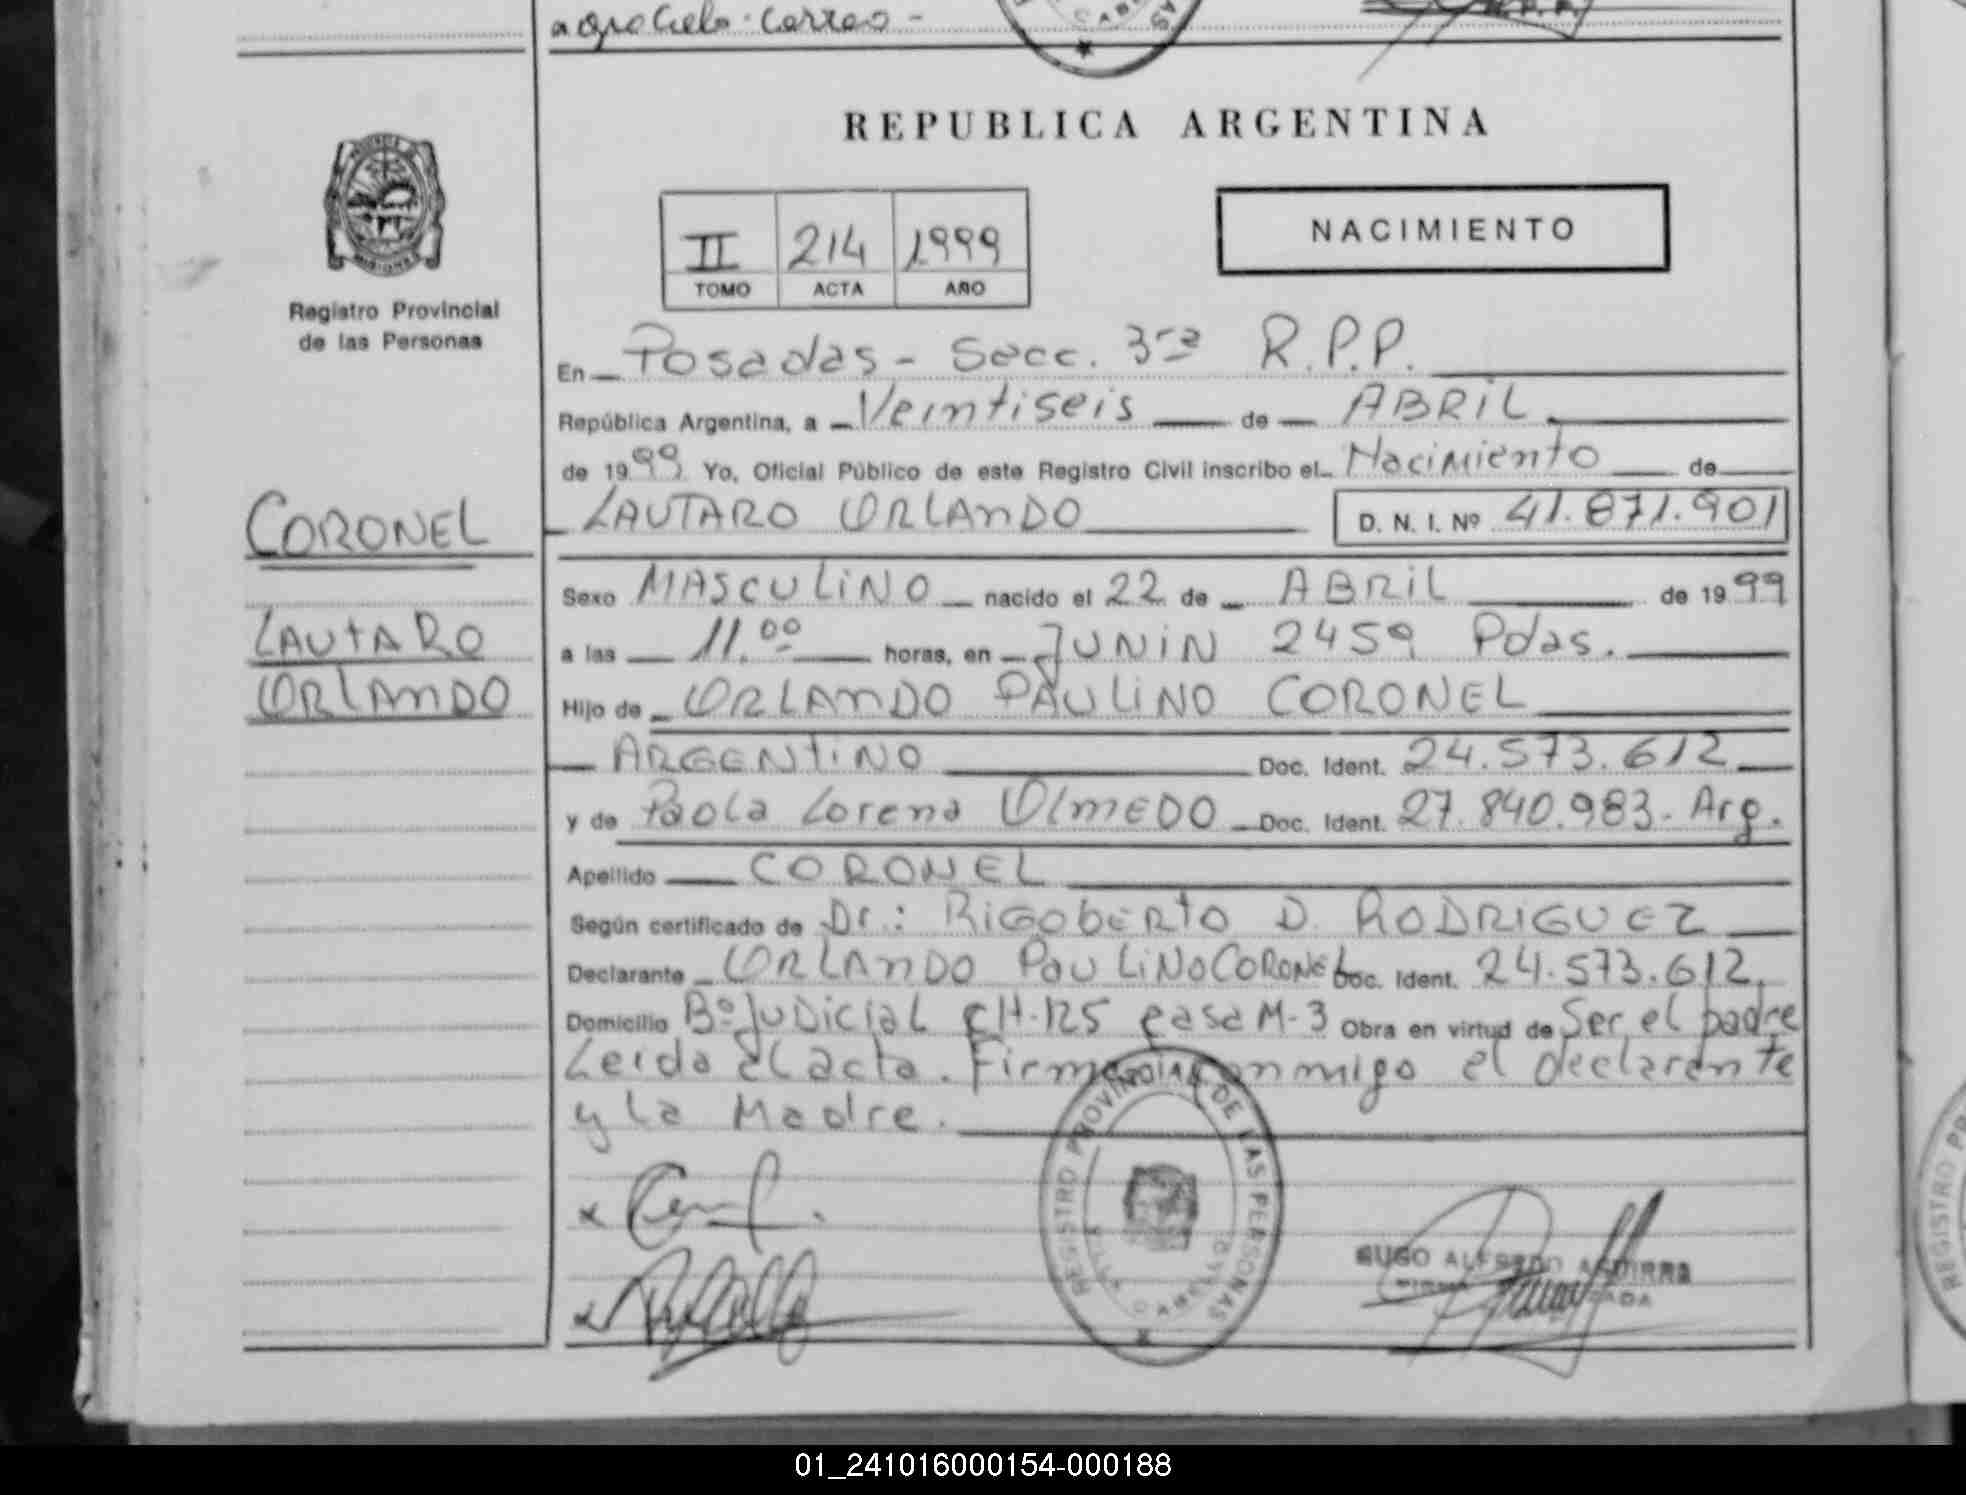 agrocielo. correo -
REPUBLICA ARGENTINA
II 214 1999
TOMO ACTA AÑO
NACIMIENTO
Registro Provincial
de las Personas
CORONEL
LAUTARO
ORLANDO
En Posadas - Secc. 3ra R.P.P.
República Argentina, a Veintiseis de ABRIL
de 1999 Yo, Oficial Público de este Registro Civil inscribo el Nacimiento de
LAUTARO ORLANDO D. N. I. Nº 41.871.901
Sexo MASCULINO nacido el 22 de ABRIL de 1999
a las 11.00 horas, en JUNIN 2459 Pdas.
Hijo de ORLANDO PAULINO CORONEL
ARGENTINO Doc. Ident. 24.573.612
y de Paola Lorena OLMEDO Doc. Ident. 27.840.983. Arg.
Apellido CORONEL
Según certificado de Dr.: RIGOBERTO D. RODRIGUEZ
Declarante ORLANDO PAULINO CORONEL Doc. Ident. 24.573.612.
Domicilio Bº Judicial CH.125 casa M-3 Obra en virtud de Ser el padre
Leida el acta. Firman conmigo el declarante
y la Madre.
REGISTRO PROVINCIAL DE LAS PERSONAS
VILLA CABELLO
HUGO ALFREDO AGUIRRE
01_241016000154-000188